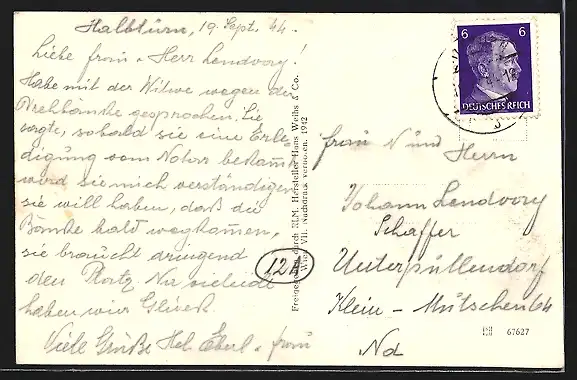 Halbturn, 19. Sept. 44.
Liebe frau u. Herr Lendvory!
Habe mit der Witwe wegen der
gesprochen. Sie
sagte, sobald sie eine Erle-
digung vom Notar bekommt
wird sie mich verständigen
sie will haben, daß die
Bänke bald wegkommen,
sie braucht dringend
den Platz. Na vieleicht
haben wir Glück.
Viele Grüße Hel. Eberl u. frau
12A
Freigegeben durch RLM. Hersteller Hans Weihs & Co.
Wien VII. Nachdruck verboten. 1942
6 6
DEUTSCHES REICH
frau u nd Herrn
Johann Lendvory
Schaffer
Unterpullendorf
Klein - Mutschen 64
Nd
67627